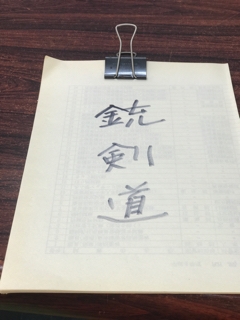 銃
剣
道